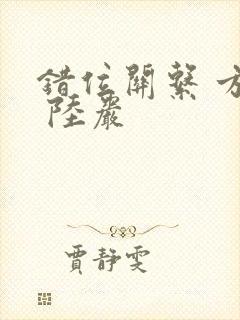 錯位關系 方
陸嚴
賈靜雯